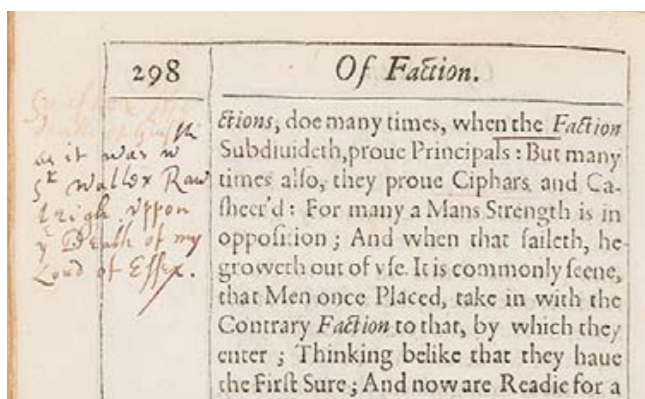 298
Of Faction.
as it was w
Sr Walter Raw
leigh vppon
ye Death of my
Lord of Essex.
ctions, doe many times, when the Faction
Subdiuideth,proue Principals : But many
times also, they proue Ciphars and Ca-
sheer'd : For many a Mans Strength is in
opposition ; And when that faileth, he
groweth out of vse. It is commonly seene,
that Men once Placed, take in with the
Contrary Faction to that, by which they
enter ; Thinking belike that they haue
the First Sure ; And now are Readie for a